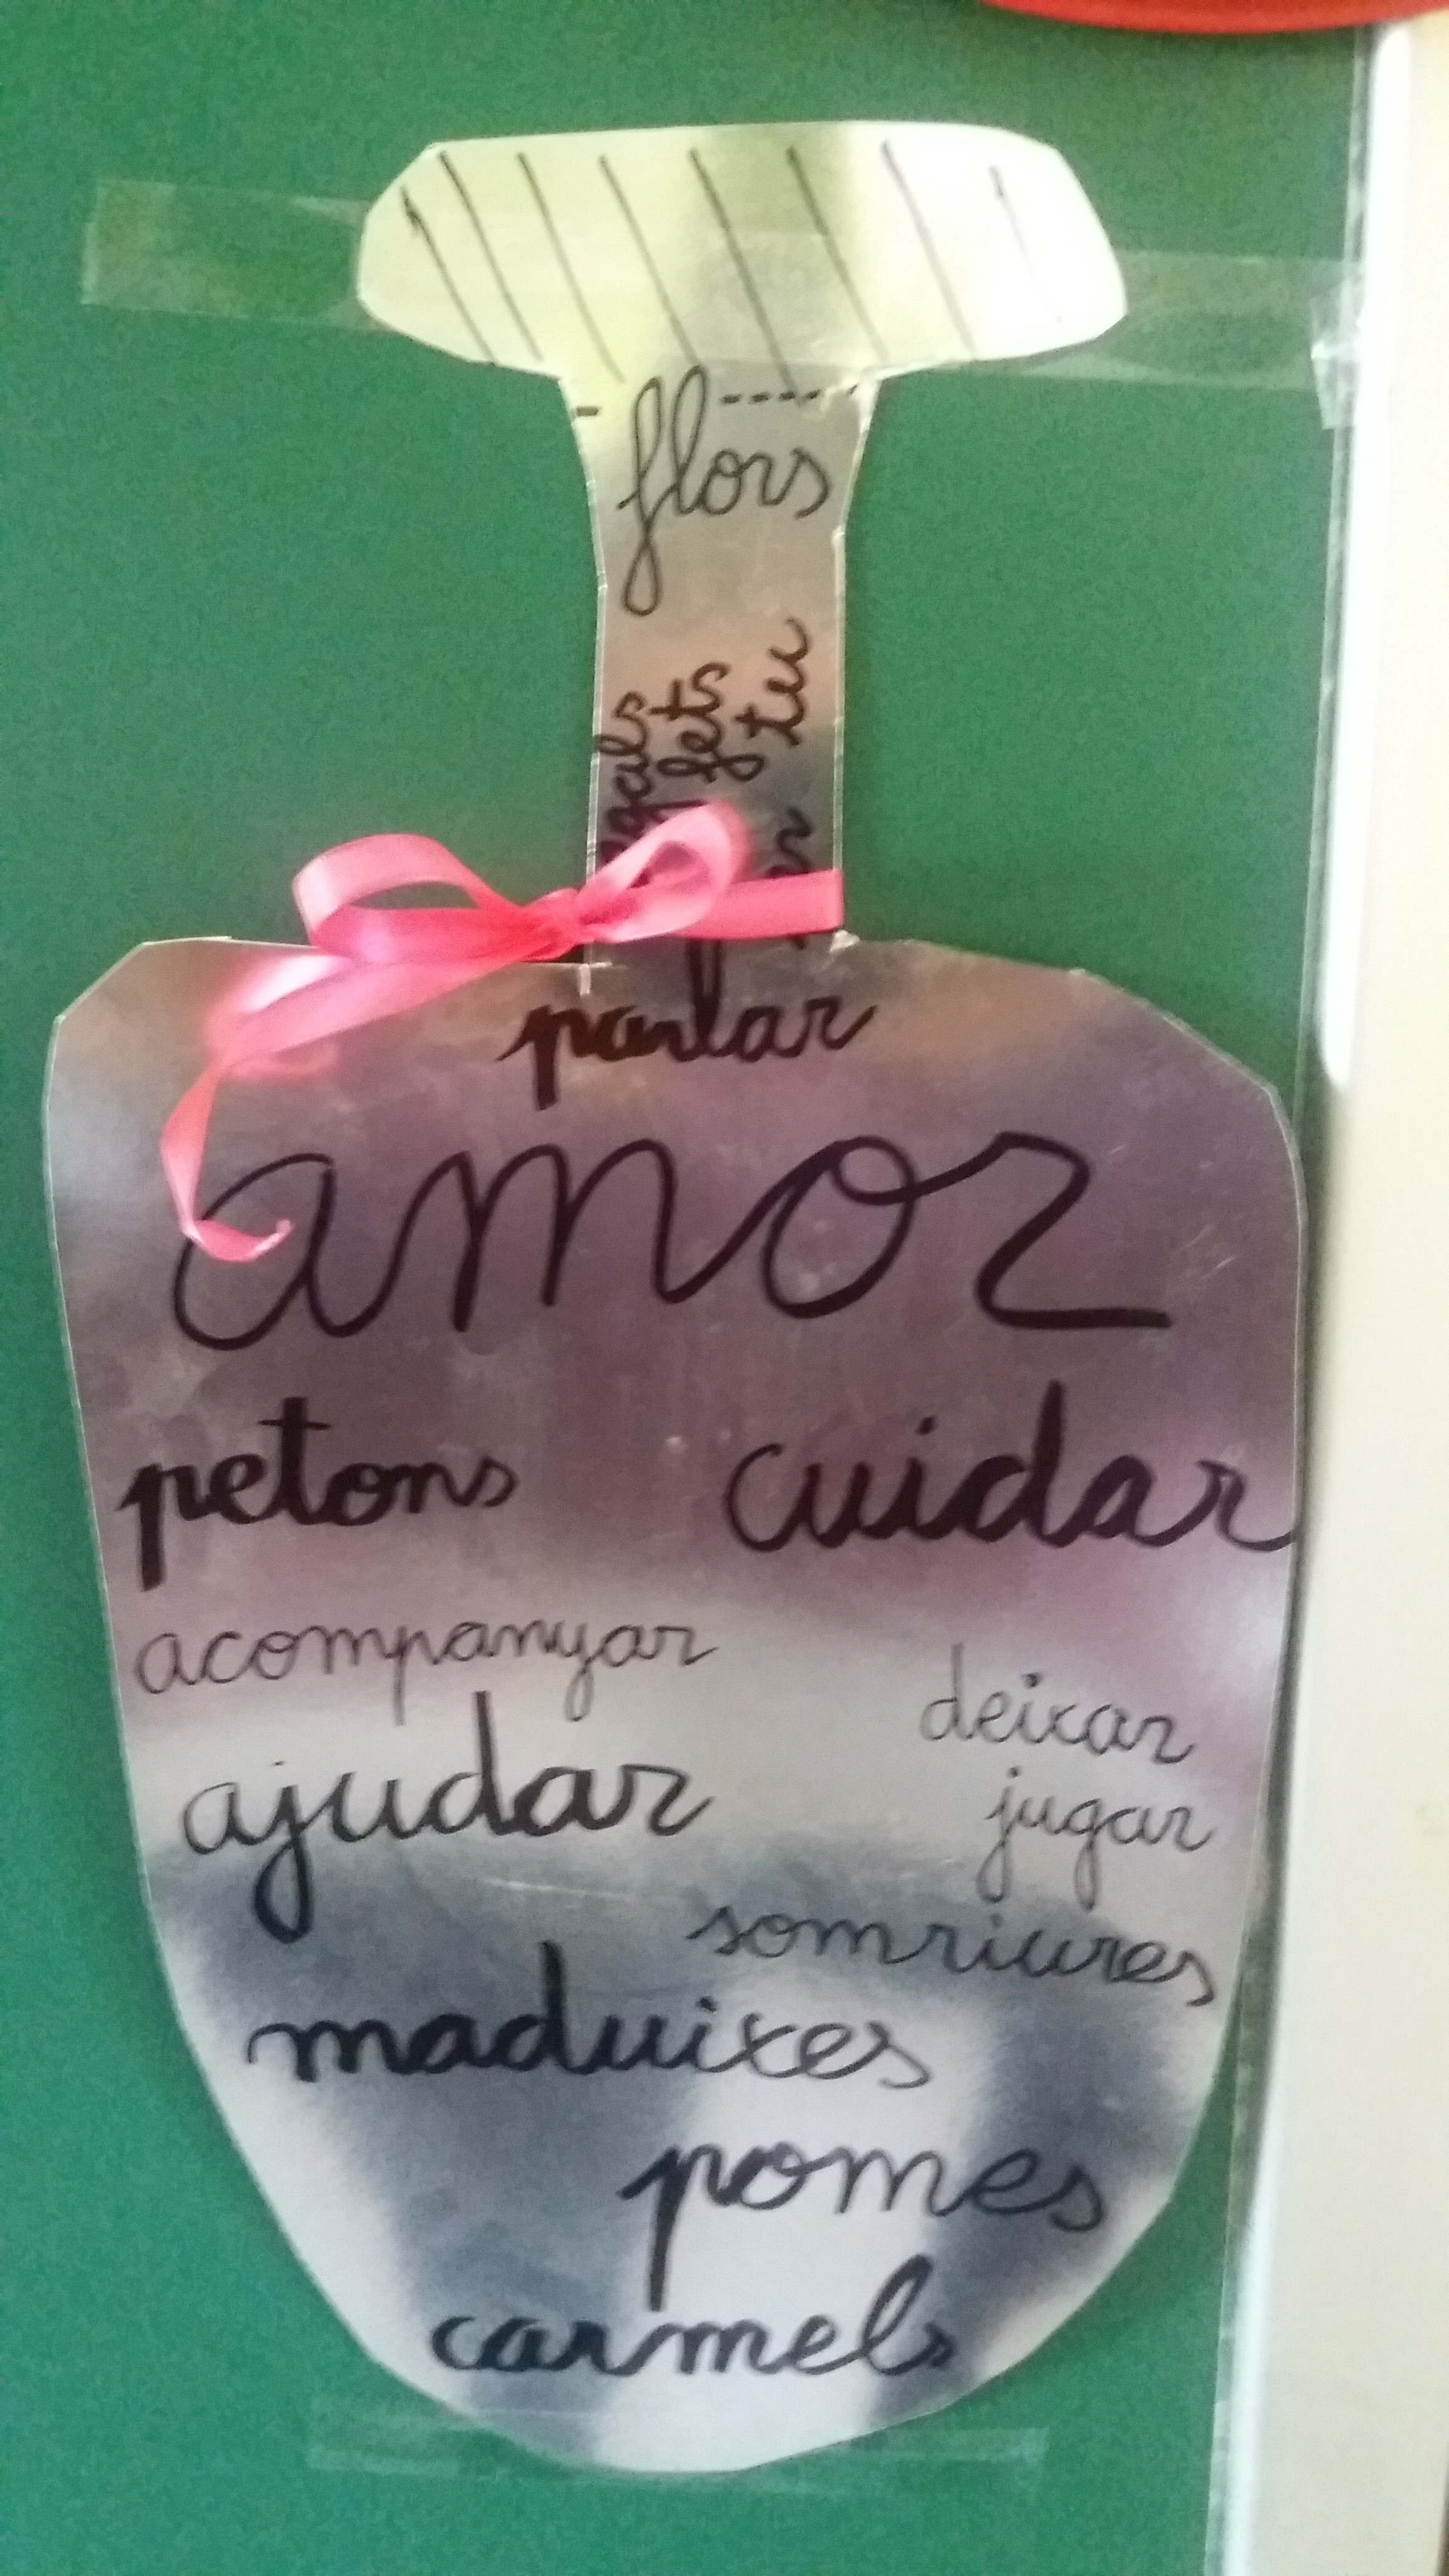 flors
fets
tu
parlar
amor
petons
cuidar
acompanyar
deixar
jugar
ajudar
somriures
maduixes
pomes
carmels